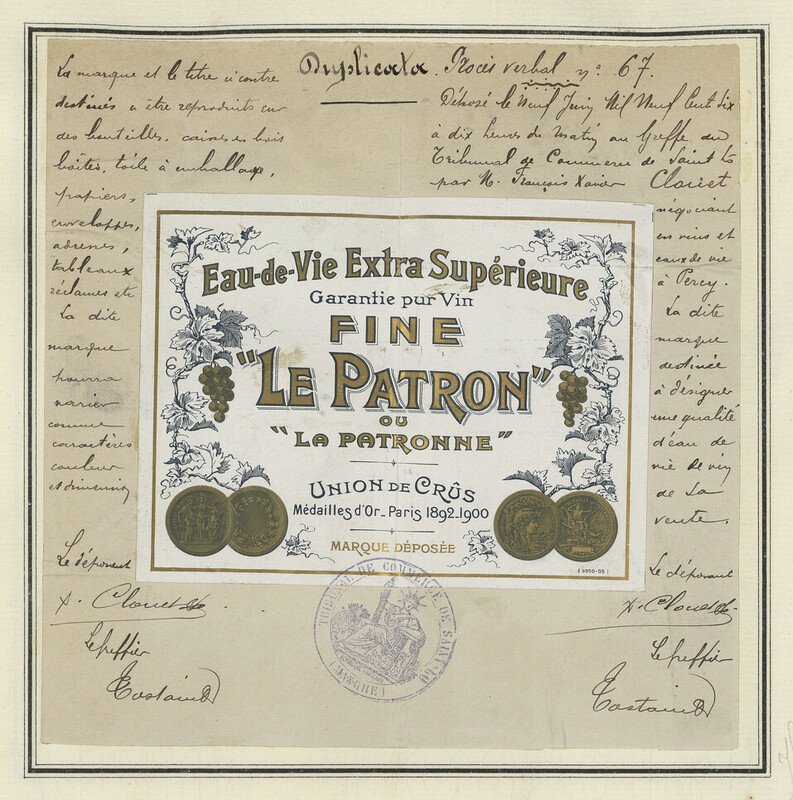 Duplicata. Procès verbal nº 67.
La marque et le titre ci contre
destinés à être reproduits sur
des bouteilles, caisses en bois
boîtes, toile à emballage,
papiers,
enveloppes,
adresses,
tableaux
réclames etc
La dite
marque
pourra
varier
comme
caractères
couleur
et dimensions
Le déposant
X. Clouet
Le greffier
Costaind
Déposé le Neuf Juin Mil Neuf Cent dix
à dix heures du matin au Greffe du
Tribunal de Commerce de Saint Lo
par M. François Xavier Clouet
négociant
en vins et
eaux de vie
à Percy.
La dite
marque
destinée
à désigner
une qualité
d'eau de
vie de vin
de sa
vente.
Le déposant
X. Clouet
Le greffier
Costaind
Eau-de-Vie Extra Supérieure
Garantie pur Vin
FINE
"LE PATRON"
OU
"LA PATRONNE"
UNION DE CRÛS
Médailles d'Or_Paris 1892_1900
MARQUE DÉPOSÉE
(3950-05)
TRIBUNAL DE COMMERCE DE SAINT-LO
(MANCHE)